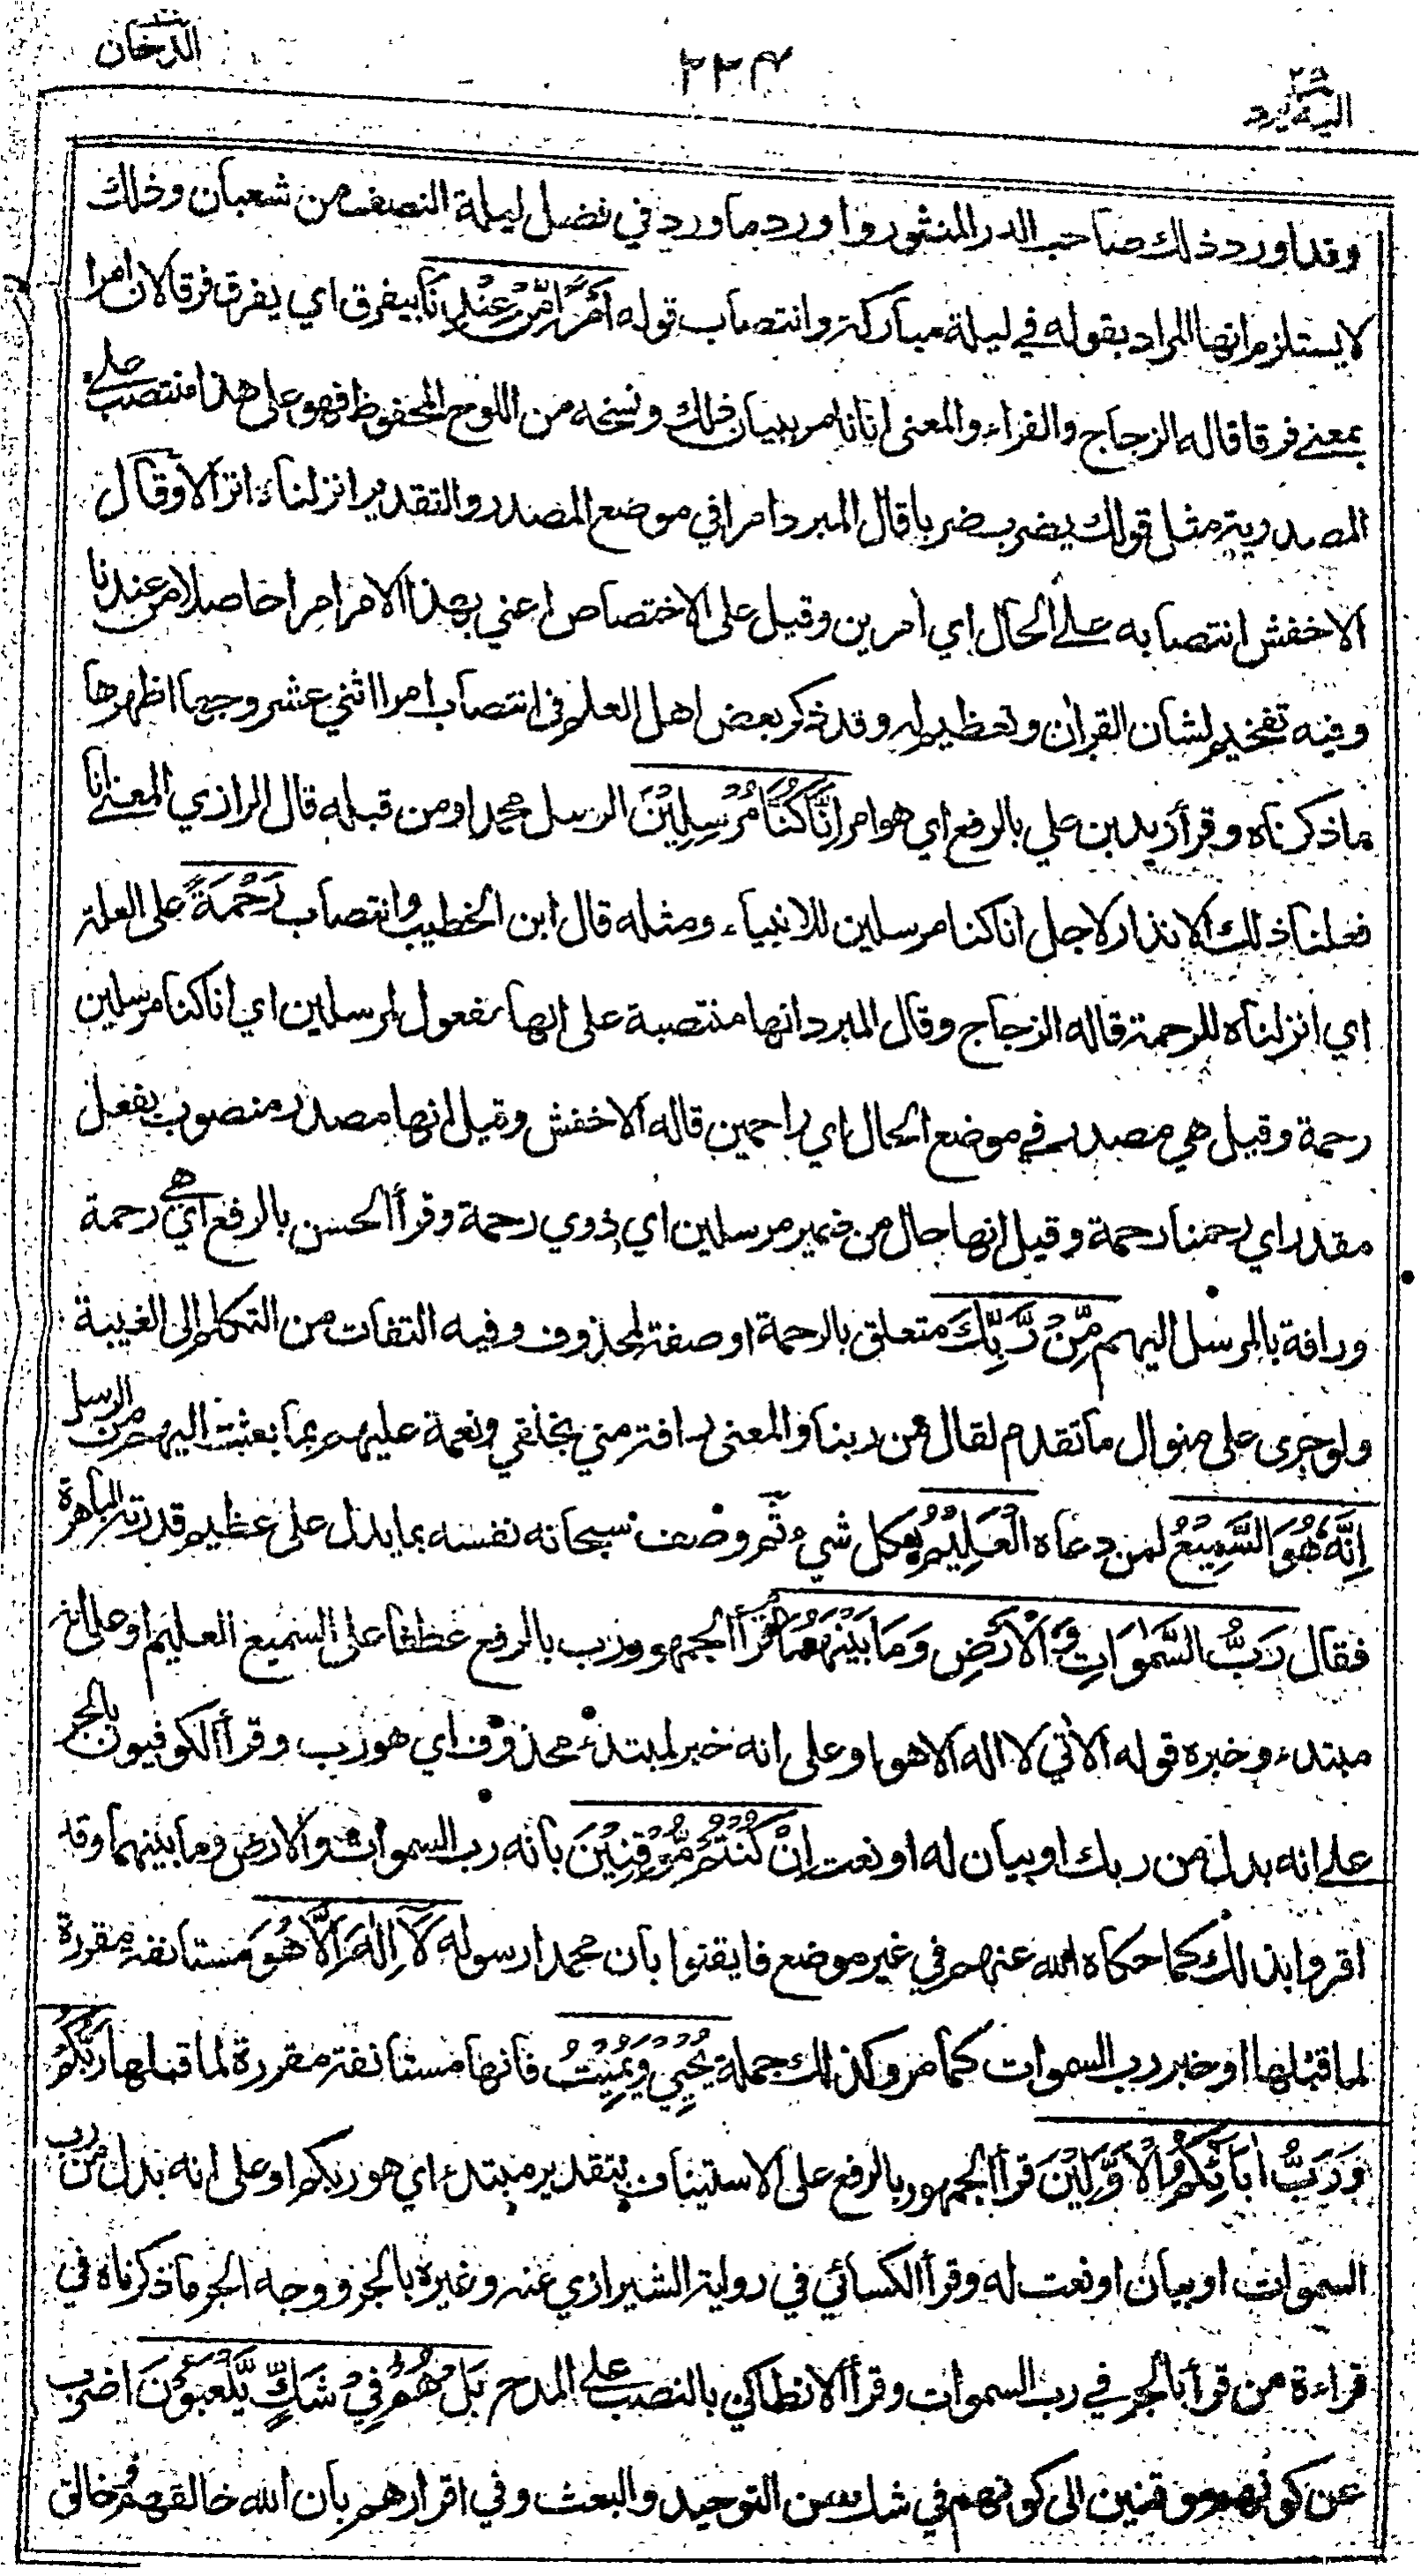 الدخان
٢٢٤
٢٥
اليه يرد
وقد اورد ذلك صاحب الدر المنثور واورد ما ورد في فضل ليلة النصف من شعبان وذلك
لا يستلزم انها المراد بقوله في ليلة مباركة وانتصاب قوله اَمْرًا مِّنْ عِنْدِنَا بيفرق اي يفرق فرقا لان امرا
بمعنى فرقا قاله الزجاج والفراء والمعنى انا نامر ببيان ذلك ونسخه من اللوح المحفوظ فهو على هذا منتصب على
المصدرية مثل قولك يضرب ضربا قال المبرد امرا في موضع المصدر والتقدير انزلناه انزالا وقال
الاخفش انتصابه على الحال اي امرين وقيل على الاختصاص اعني بهذا الامر امرا حاصلا من عندنا
وفيه تفخيم لشان القران وتعظيم له وقد ذكر بعض اهل العلم في انتصاب امرا اثني عشر وجها اظهرها
ما ذكرناه وقرأ زيد بن علي بالرفع اي هو امر اِنَّا كُنَّا مُرْسِلِيْنَ الرسل محمدا ومن قبله قال الرازي المعنى انا
فعلنا ذلك الانذار لاجل انا كنا مرسلين للانبياء ومثله قال ابن الخطيب وانتصاب رَحْمَةً على العلة
اي انزلناه للرحمة قاله الزجاج وقال المبرد انها منتصبة على انها مفعول لمرسلين اي انا كنا مرسلين
رحمة وقيل هي مصدر في موضع الحال اي راحمين قاله الاخفش وقيل انها مصدر منصوب بفعل
مقدر اي رحمنا رحمة وقيل انها حال من ضمير مرسلين اي ذوي رحمة وقرأ الحسن بالرفع اي هي رحمة
ورافة بالمرسل اليهم مِّنْ رَّبِّكَ متعلق بالرحمة او صفة لمحذوف وفيه التفات من التكلم الى الغيبة
ولو جرى على منوال ما تقدم لقال من ربنا والمعنى رافة مني بخلقي ونعمة عليهم بما بعثت اليهم من الرسل
اِنَّهٗ هُوَ السَّمِيْعُ لمن دعاه الْعَلِيْمُ بكل شيء ثم وصف سبحانه نفسه بما يدل على عظيم قدرته الباهرة
فقال رَبُّ السَّمٰوَاتِ وَ الْاَرْضِ وَمَا بَيْنَهُمَا قرأ الجمهور رب بالرفع عطفا على السميع العليم او على انه
مبتدء وخبره قوله الاتي لا اله الا هو او على انه خبر لمبتدء محذوف اي هو رب وقرأ الكوفيون بالجر
على انه بدل من ربك او بيان له او نعت اِنْ كُنْتُمْ مُّوْقِنِيْنَ بانه رب السموات والارض وما بينهما وقد
اقروا بذلك كما حكاه الله عنهم في غير موضع فايقنوا بان محمدا رسوله لَا اِلٰهَ اِلَّا هُوَ مستانفة مقررة
لما قبلها او خبر رب السموات كما مر وكذلك جملة يُحْيِيْ وَيُمِيْتُ فانها مستانفة مقررة لما قبلها رَبُّكُمْ
وَرَبُّ اٰبَآئِكُمُ الْاَوَّلِيْنَ قرأ الجمهور بالرفع على الاستيناف بتقدير مبتدء اي هو ربكم او على انه بدل من رب
السموات او بيان او نعت له وقرأ الكسائي في رواية الشيرازي عنه وغيره بالجر ووجه الجر ما ذكرناه في
قراءة من قرأ بالجر في رب السموات وقرأ الانطاكي بالنصب على المدح بَلْ هُمْ فِيْ شَكٍّ يَّلْعَبُوْنَ اضرب
عن كونهم موقنين الى كونهم في شك من التوحيد والبعث وفي اقرارهم بان الله خالقهم وخالق